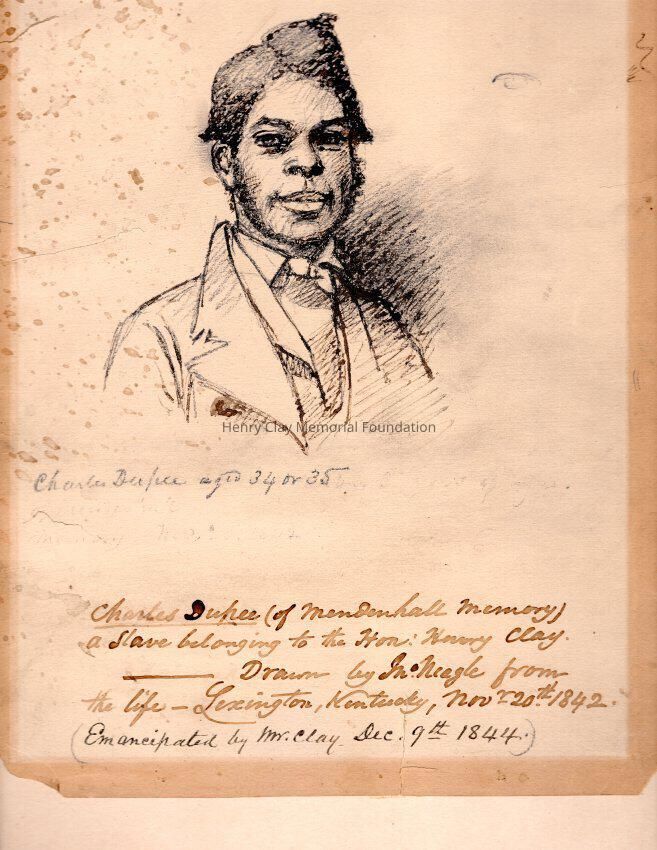 Henry Clay Memorial Foundation
Charles Dupee aged 34 or 35
Charles Dupee (of Mendenhall Memory)
a Slave belonging to the Hon: Henry Clay.
Drawn by Jno. Neagle from
the life – Lexington, Kentucky, Novr. 20th 1842.
(Emancipated by Mr. Clay. Dec. 9th 1844.)